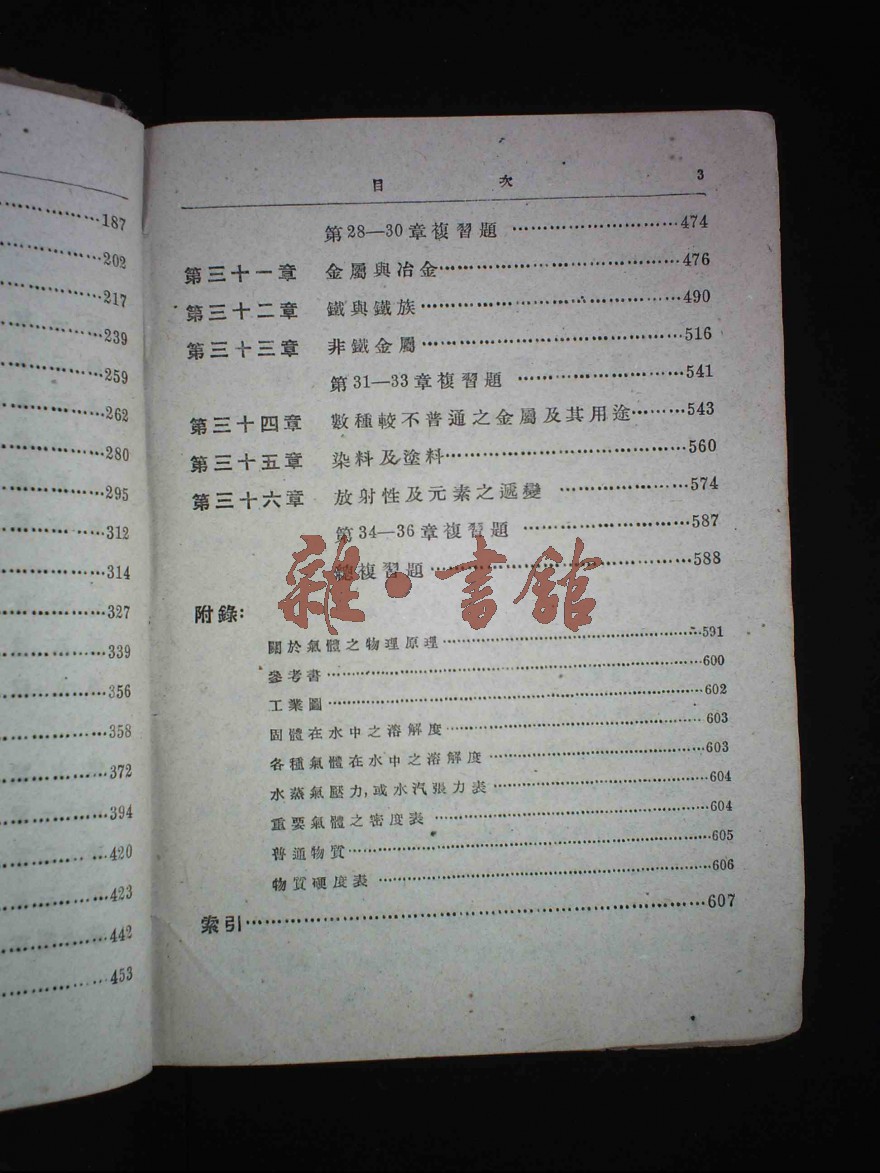 187
202
217
239
259
262
280
295
312
314
327
339
356
358
372
394
420
423
442
453
目 次 3
第28—30章複習題 474
第三十一章 金屬與冶金 476
第三十二章 鐵與鐵族 490
第三十三章 非鐵金屬 516
第31—33章複習題 541
第三十四章 數種較不普通之金屬及其用途 543
第三十五章 染料及塗料 560
第三十六章 放射性及元素之遞變 574
第34—36章複習題 587
總複習題 588
雜·書館
附錄:
關於氣體之物理原理 591
參考書 600
工業圖 602
固體在水中之溶解度 603
各種氣體在水中之溶解度 603
水蒸氣壓力,或水汽張力表 604
重要氣體之密度表 604
普通物質 605
物質硬度表 606
索引 607